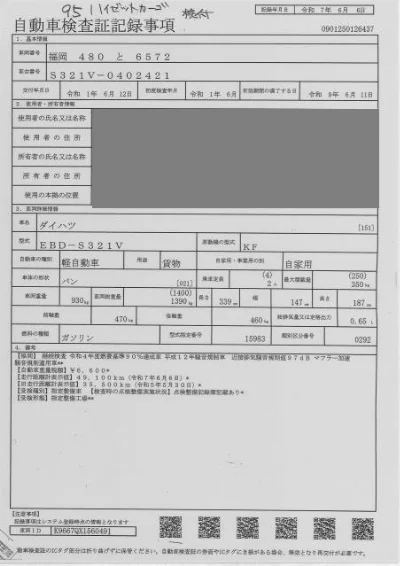 95 ハイゼットカーゴ 検付
記録年月日 令和 7年 6月 6日
自動車検査証記録事項 0901250126437
1. 基本情報
車両番号 福岡 480 と 6572
車台番号 S321V-0402421
交付年月日 令和 1年 6月 12日 初度検査年月 令和 1年 6月 有効期間の満了する日 令和 9年 6月 11日
2. 使用者・所有者情報
使用者の氏名又は名称
使用者の住所
所有者の氏名又は名称
所有者の住所
使用の本拠の位置
3. 車両詳細情報
車名 ダイハツ [151]
型式 EBD-S321V 原動機の型式 KF
自動車の種別 軽自動車 用途 貨物 自家用・事業用の別 自家用
車体の形状 バン [021] 乗車定員 (4) 2人 最大積載量 (250) 350kg
車両重量 930kg 車両総重量 (1400) 1390kg 長さ 339cm 幅 147cm 高さ 187cm
前軸重 470kg 後軸重 460kg 総排気量又は定格出力 0.65L
燃料の種類 ガソリン 型式指定番号 15983 類別区分番号 0292
4. 備考
【福岡】 継続検査 令和4年度燃費基準90%達成車 平成12年騒音規制車 近接排気騒音規制値97dB マフラー加速
騒音規制適用車**
【自動車重量税額】¥6,600*
【走行距離計表示値】49,100km (令和7年6月6日)*
【旧走行距離計表示値】35,500km (令和5年5月30日)*
【受検種別】指定整備車 【検査時の点検整備実施状況】点検整備記録簿記載あり*
【受検形態】指定整備工場**
【注意事項】
記録事項はシステム登録時点の情報となります
車両ID K9667QX156049]
自動車検査証のICタグ部分は折り曲げずに保管ください。自動車検査証の券面やICタグに含がある場合、無効となり再交付が必要です。